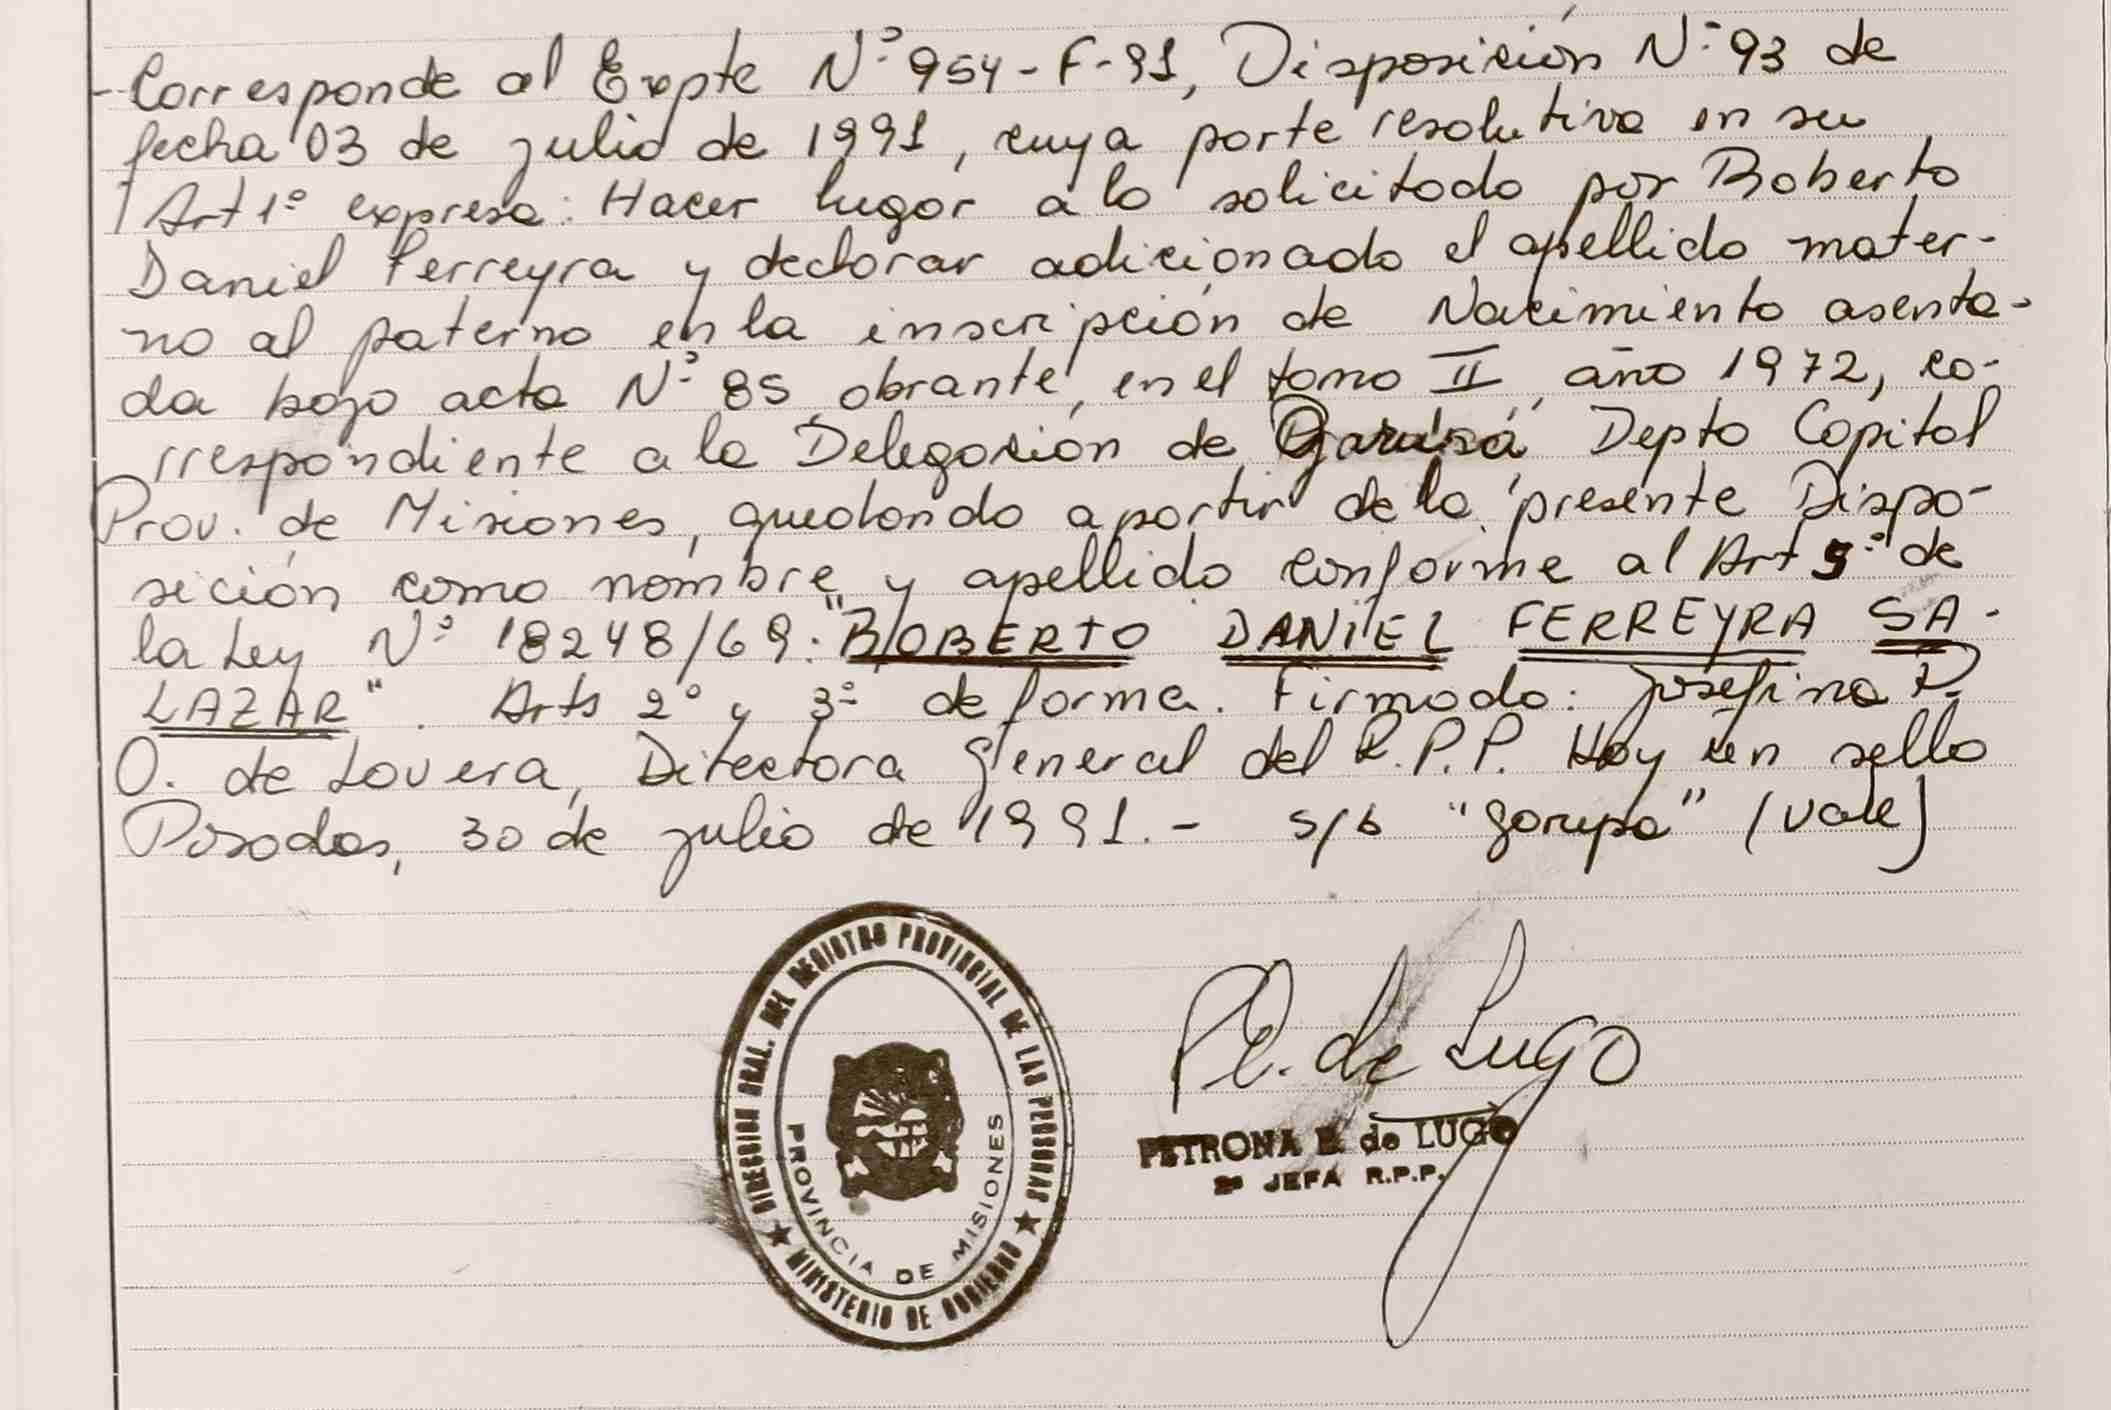 - Corresponde al Expte N° 954-F-91, Disposición N° 93 de
fecha 03 de julio de 1991, cuya parte resolutiva en su
Art 1° expresa: Hacer lugar a lo solicitado por Roberto
Daniel Ferreyra y declarar adicionado el apellido mater-
no al paterno en la inscripción de Nacimiento asenta-
da bajo acta N° 85, obrante, en el tomo II, año 1972, co-
rrespondiente a la Delegación de Garupá, Depto Capital
Prov. de Misiones, quedando a partir de la presente Dispo-
sición como nombre y apellido conforme al Art 5° de
la Ley N° 18248/69: "ROBERTO DANIEL FERREYRA SA-
LAZAR". Arts 2° y 3° de forma. Firmado: Josefina P.
O. de Lovera, Directora General del R.P.P. Hay un sello
Posadas, 30 de julio de 1991.- s/b "garupa" (vale)
DIRECCION GRAL. DEL REGISTRO PROVINCIAL DE LAS PERSONAS
PROVINCIA DE MISIONES
★ MINISTERIO DE GOBIERNO ★
de Lugo
PETRONA E. de LUGO
2ª JEFA R.P.P.